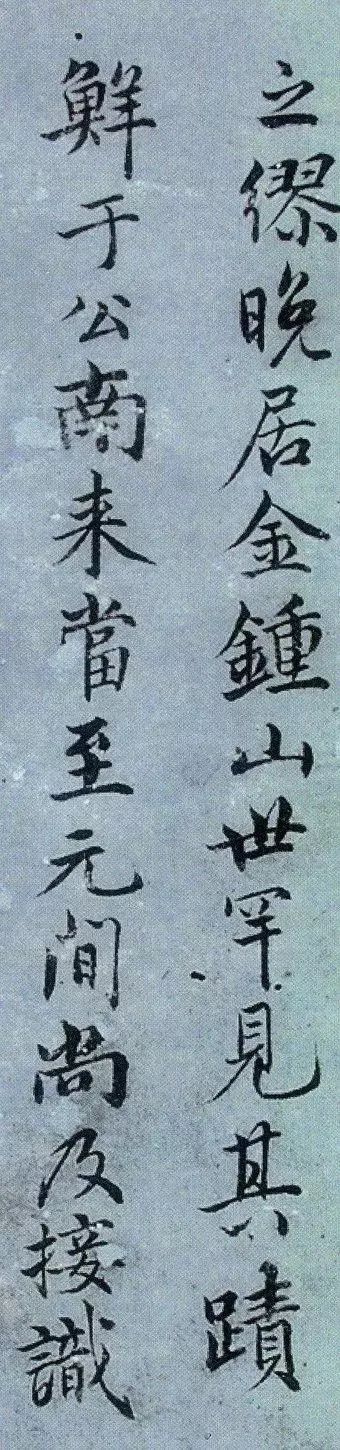 之繆晚居金鍾山世罕見其蹟
鮮于公南来當至元間尚及接識